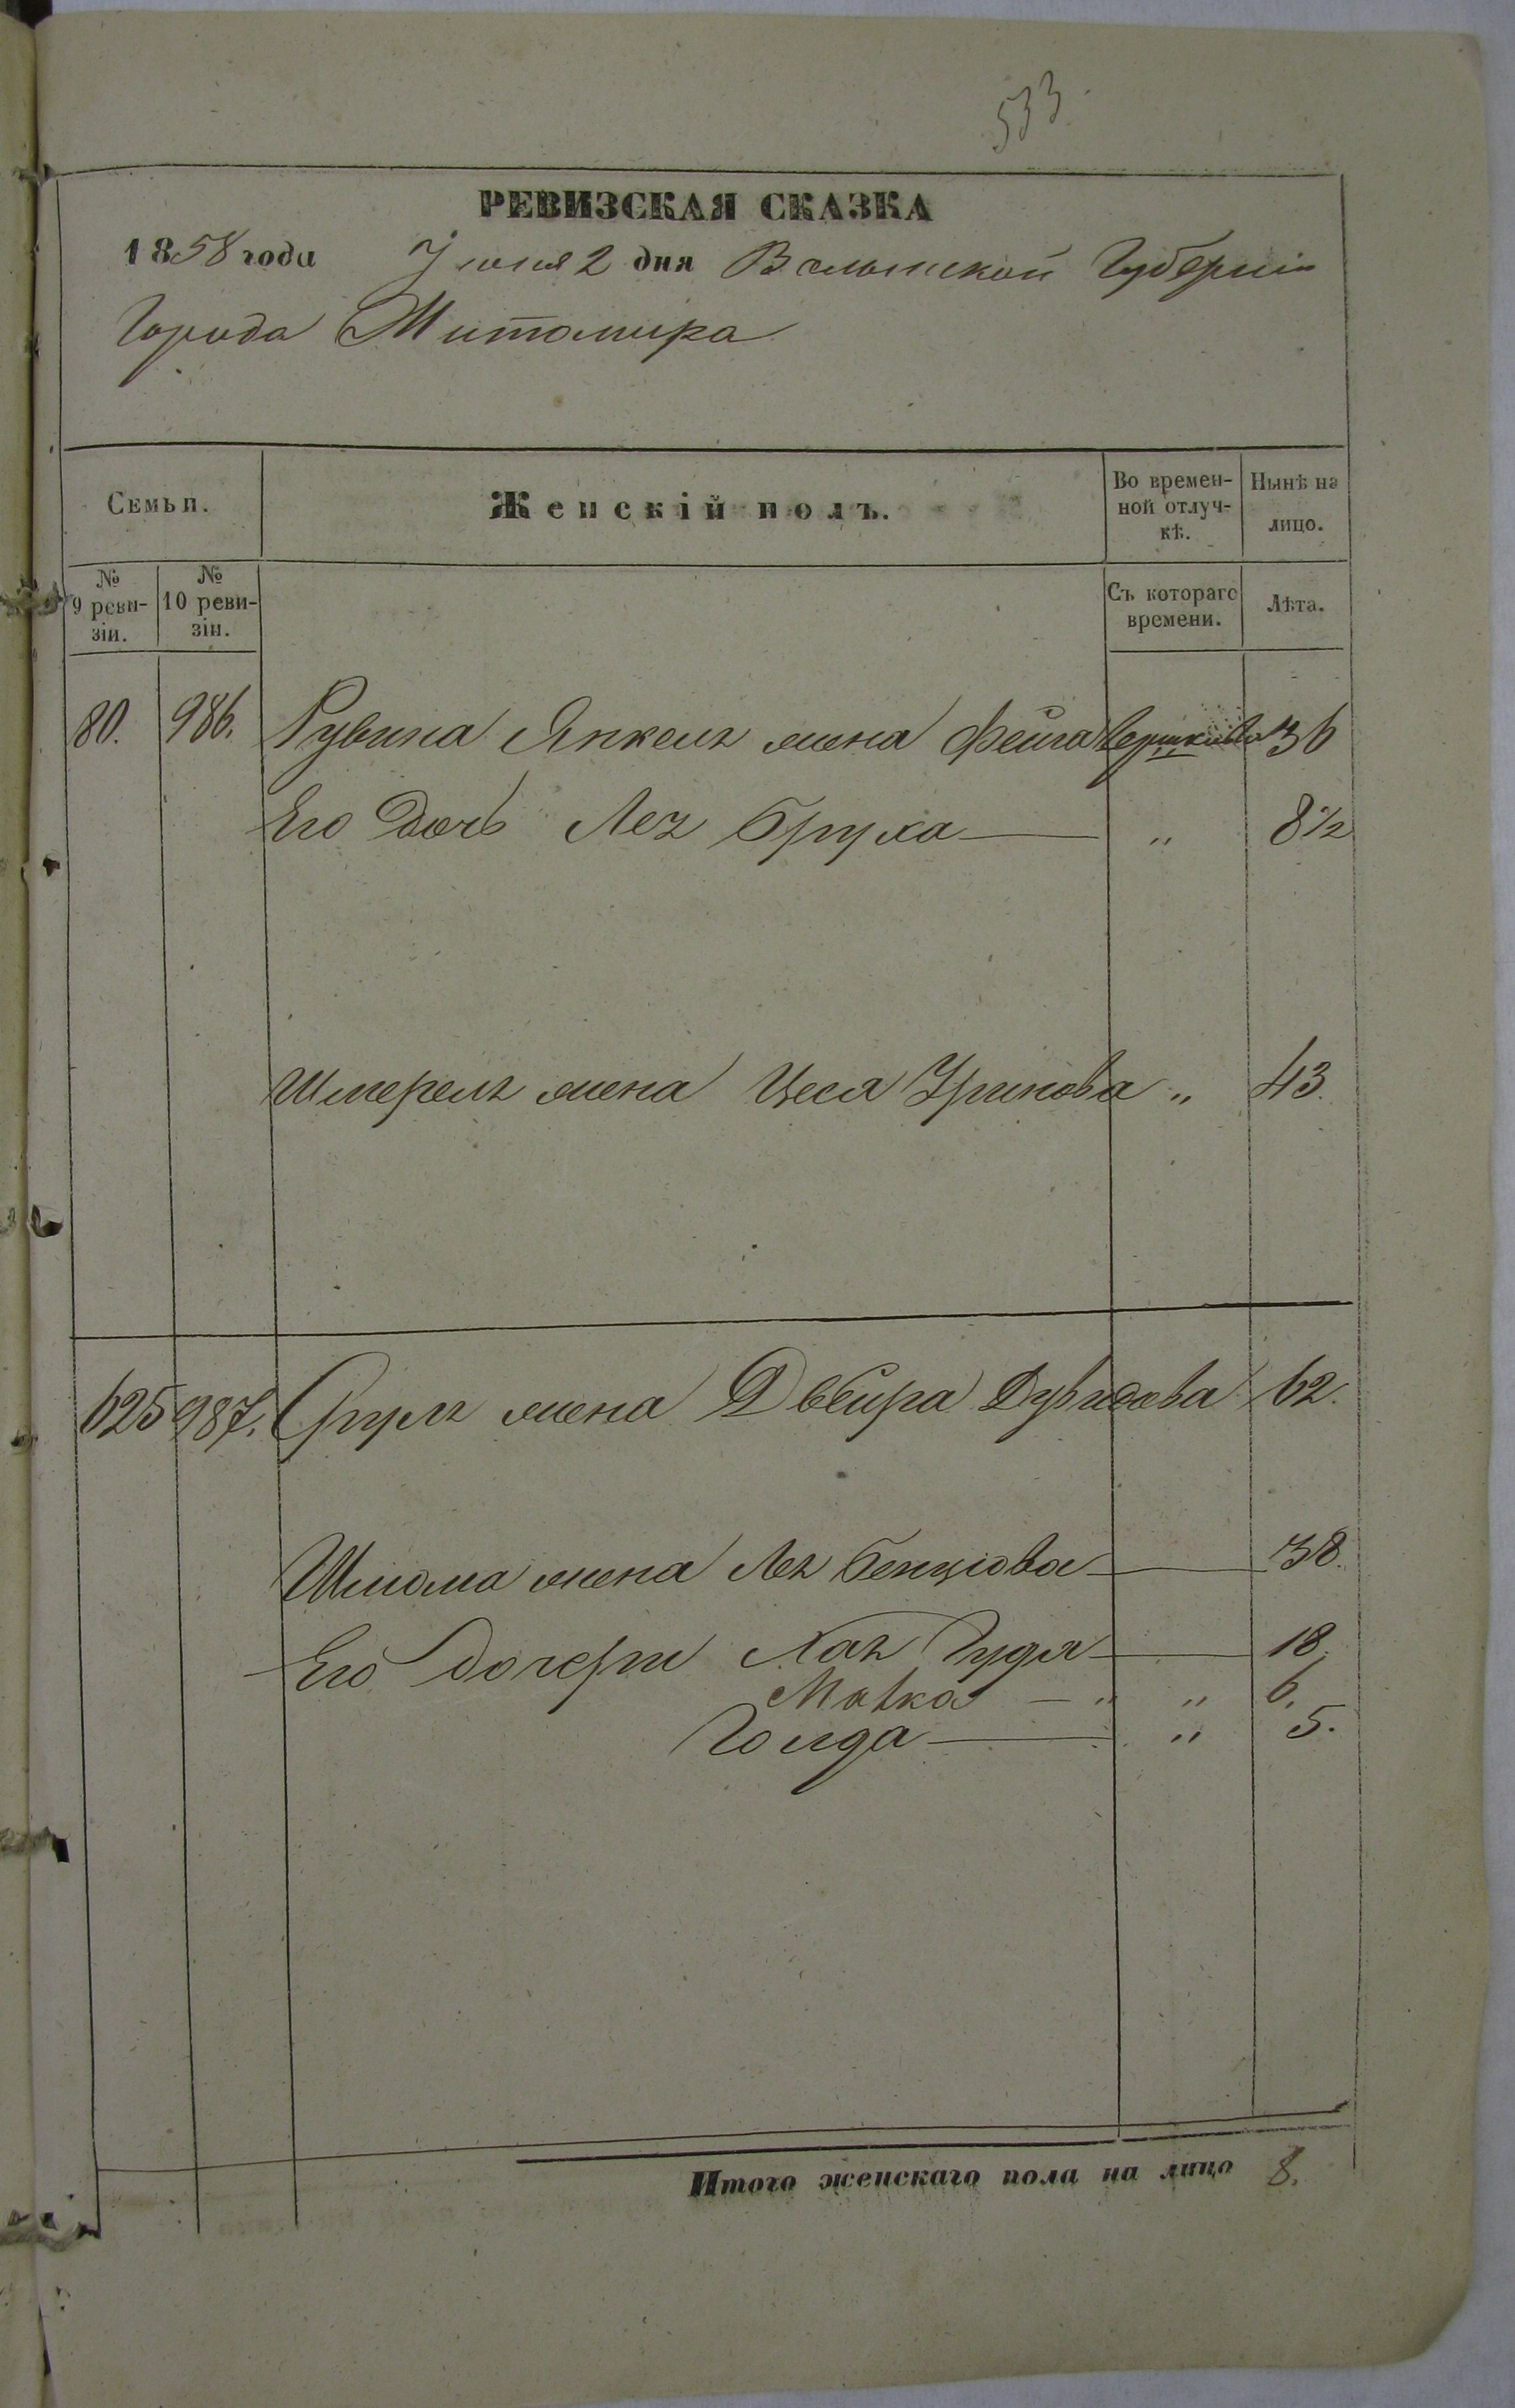 533.
РЕВИЗСКАЯ СКАЗКА
1858 года Іюня 2 дня Волынской Губерніи
Города Житомира
Семьи. Женскій полъ. Во времен-ной отлуч-кѣ. Нынѣ на лицо.
№ 9 реви-зіи. № 10 реви-зіи. Съ котораго времени. Лѣта.
80. 986. Рувина Янкель жена Фейга Бершкова 36
Его Дочь Лея Бруха — " 8½
Шмерель жена Цеся Уринова " 43.
625 987. Сруль жена Двейра Дувидова 62.
Шлиома жена Лея Бенціова — 38.
Его дочери Хая Гудя — 18.
Малка — " " 6.
Голда — " 5.
Итого женскаго пола на лицо 8.